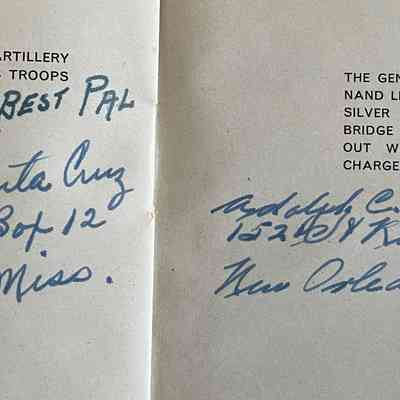 ARTILLERY
TROOPS
BEST PAL
Cruz
Box 12
Miss.
THE GEN
NAND L
SILVER
BRIDGE
OUT W
CHARGE
Adolph C.
New Orlea